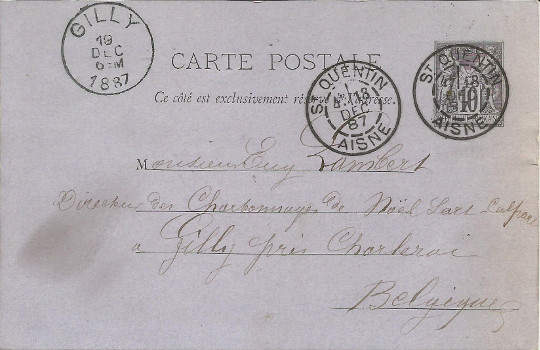 GILLY
19
DEC
6-M
1887
CARTE POSTALE
Ce côté est exclusivement réservé à l'adresse.
ST QUENTIN
18
DEC
87
AISNE
ST QUENTIN
18
10
AISNE
Monsieur Lambert
Directeur des Charbonnages de Noël Sart Culpart
a Gilly près Charleroi
Belgique